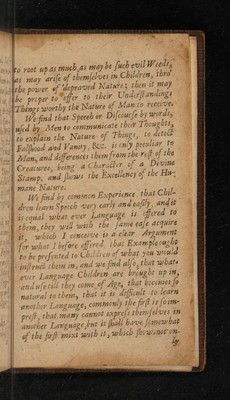 to root up as much, as may be such evil Weeds,
as may arise of themselves in Children, thro'
the power of depraved Nature; then it may
be proper to offer to their Understandings
Things worthy the Nature of Man to receive.
We find that Speech or Discourse by words,
used by Men to communicate their Thoughts,
to explain the Nature of Things, to detect
Falshood and Vanity, &c. is only peculiar to
Man, and differences them from the rest of the
Creatures, being a Character of a Divine
Stamp, and shows the Excellency of the Hu-
mane Nature.
We find by common Experience, that Chil-
dren learn Speech very early and easily, and it
is equal what ever Language is offered to
them, they will with the same ease acquire
it, which I conceive is a clear Argument
for what I before offered, that Example ought
to be presented to Children of what you would
instruct them in, and we find also, that what-
ever Language Children are brought up in,
and use till they come of Age, that becomes so
natural to them, that it is difficult to learn
another Language, commonly the first is so im-
prest, that many cannot express themselves in
another Language, but it shall have somewhat
of the first mixt with it, which shews
ly